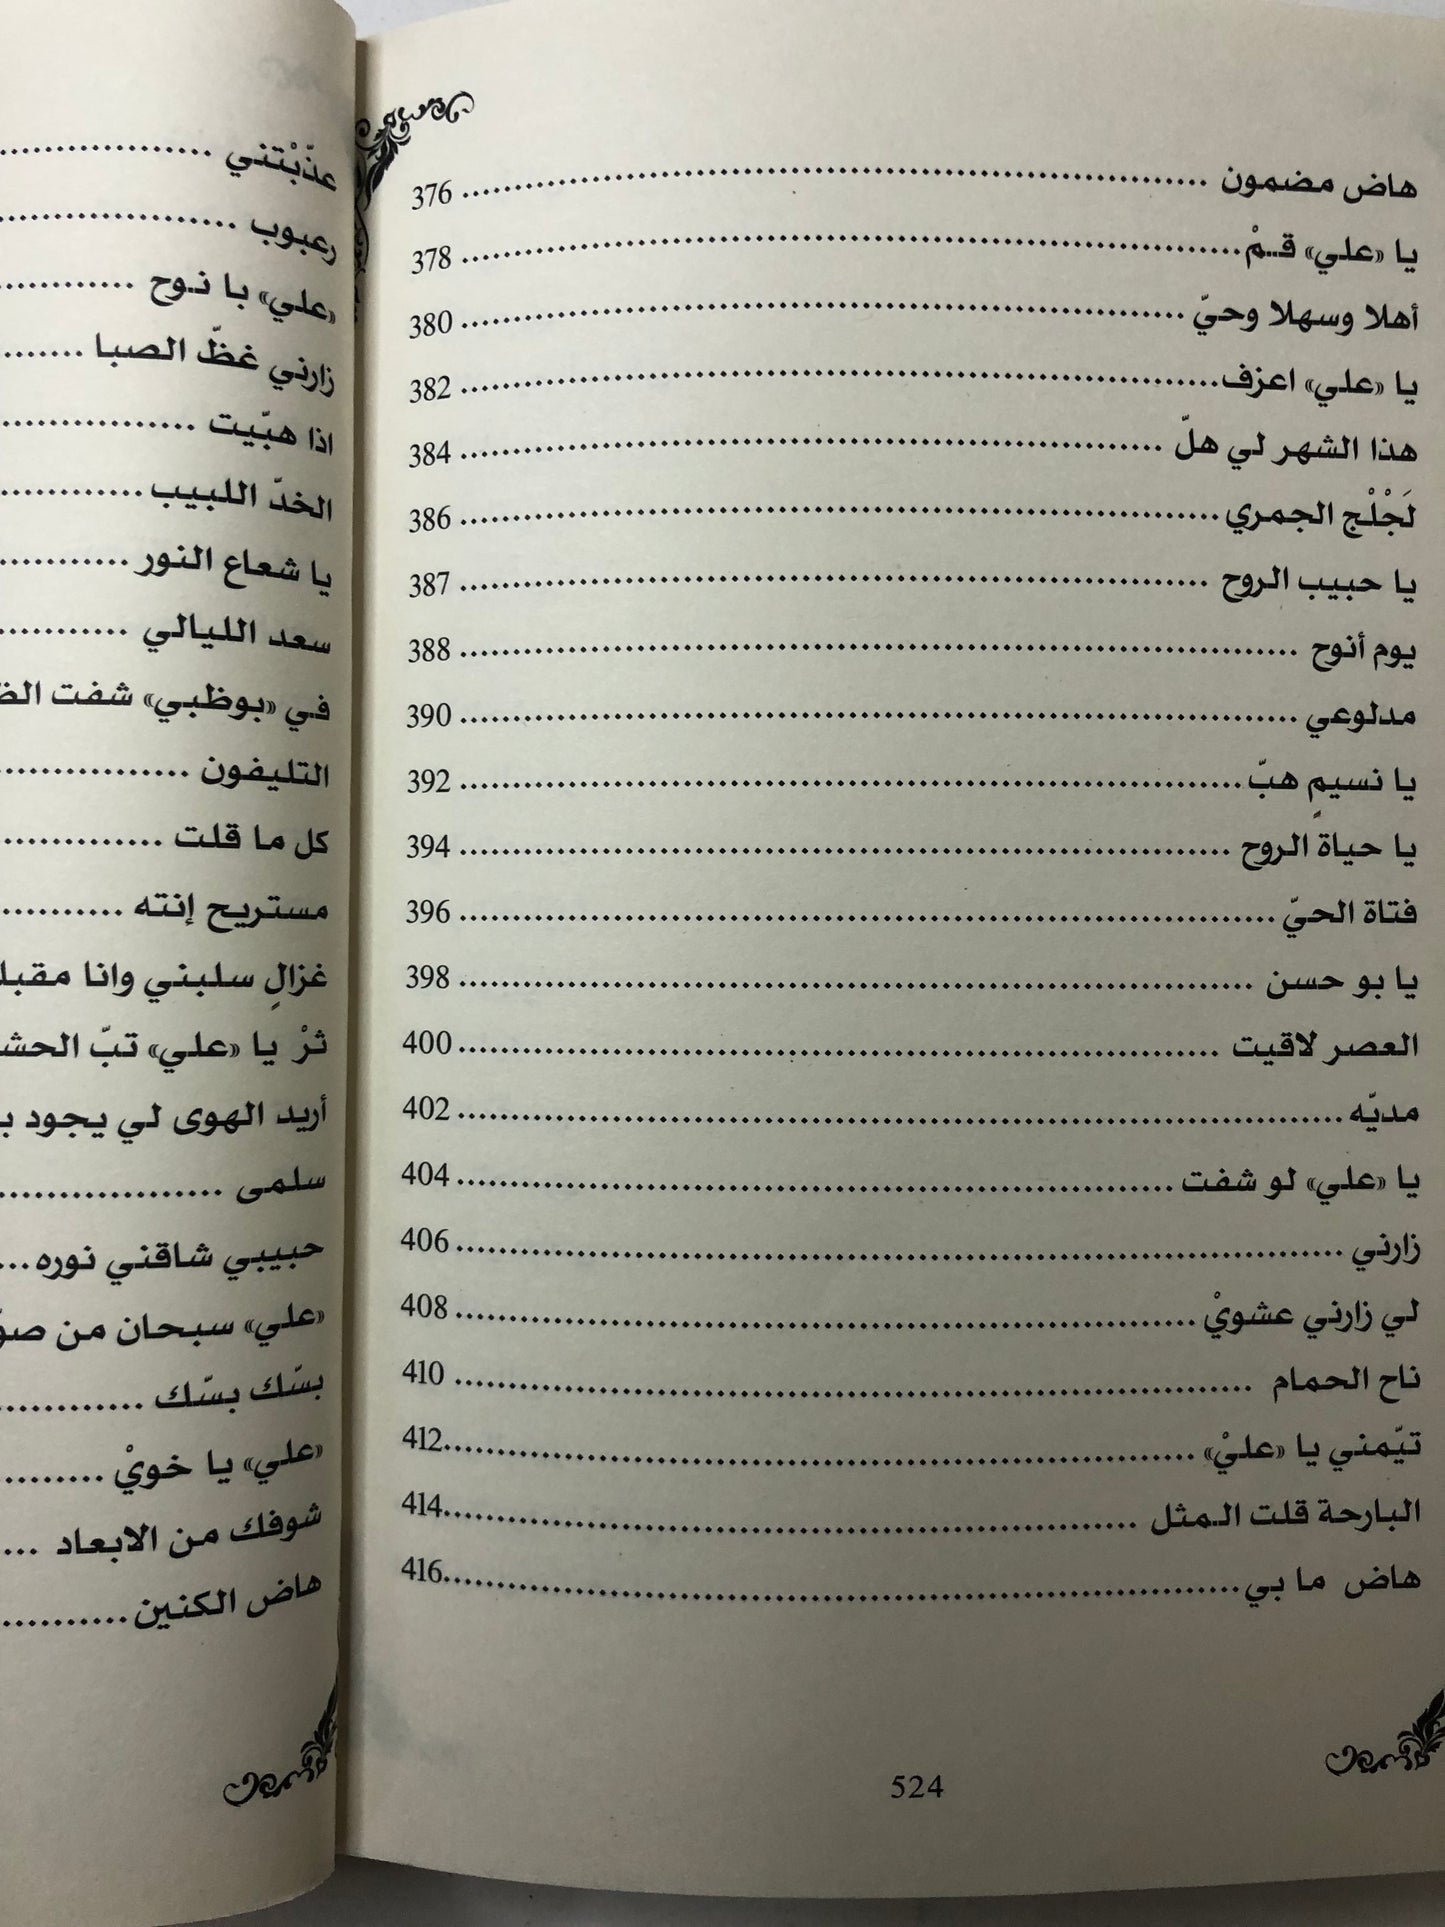 هاض مضمون ........ 376
يا «علي» قـمْ ........ 378
أهلا وسهلا وحيّ ........ 380
يا «علي» اعزف ........ 382
هذا الشهر لي هلّ ........ 384
لَجْلْج الجمري ........ 386
يا حبيب الروح ........ 387
يوم أنوح ........ 388
مدلوعي ........ 390
يا نسيمٍ هبّ ........ 392
يا حياة الروح ........ 394
فتاة الحيّ ........ 396
يا بو حسن ........ 398
العصر لاقيت ........ 400
مديّه ........ 402
يا «علي» لو شفت ........ 404
زارني ........ 406
لي زارني عشويْ ........ 408
ناح الحمام ........ 410
تيّمني يا «عليْ» ........ 412
البارحة قلت المثل ........ 414
هاض ما بي ........ 416
524
عذّبْتني ........
رعبوب ........
«علي» با نوح ........
زارني غظّ الصبا ........
اذا هبّيت ........
الخدّ اللبيب ........
يا شعاع النور ........
سعد الليالي ........
في «بوظبي» شفت
التليفون ........
كل ما قلت ........
مستريح إنته ........
غزالٍ سلبني وانا
ثرْ يا «علي» تبّ
أريد الهوى لي يجود
سلمى ........
حبيبي شاقني نوره ...
«علي» سبحان من
بسّك بسّك ........
«علي» يا خويْ ........
شوفك من الابعاد ...
هاض الكنين ........